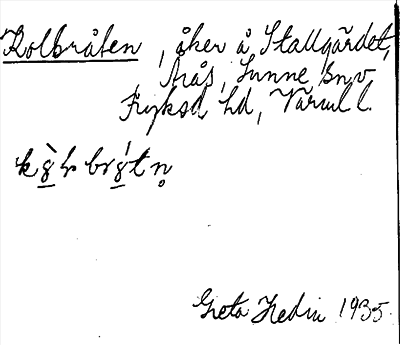 Kolbråten, åker å Stallgärdet,
Årås, Sunne sn.
Fryksd. hd, Värml l.
Greta Hedin 1935.